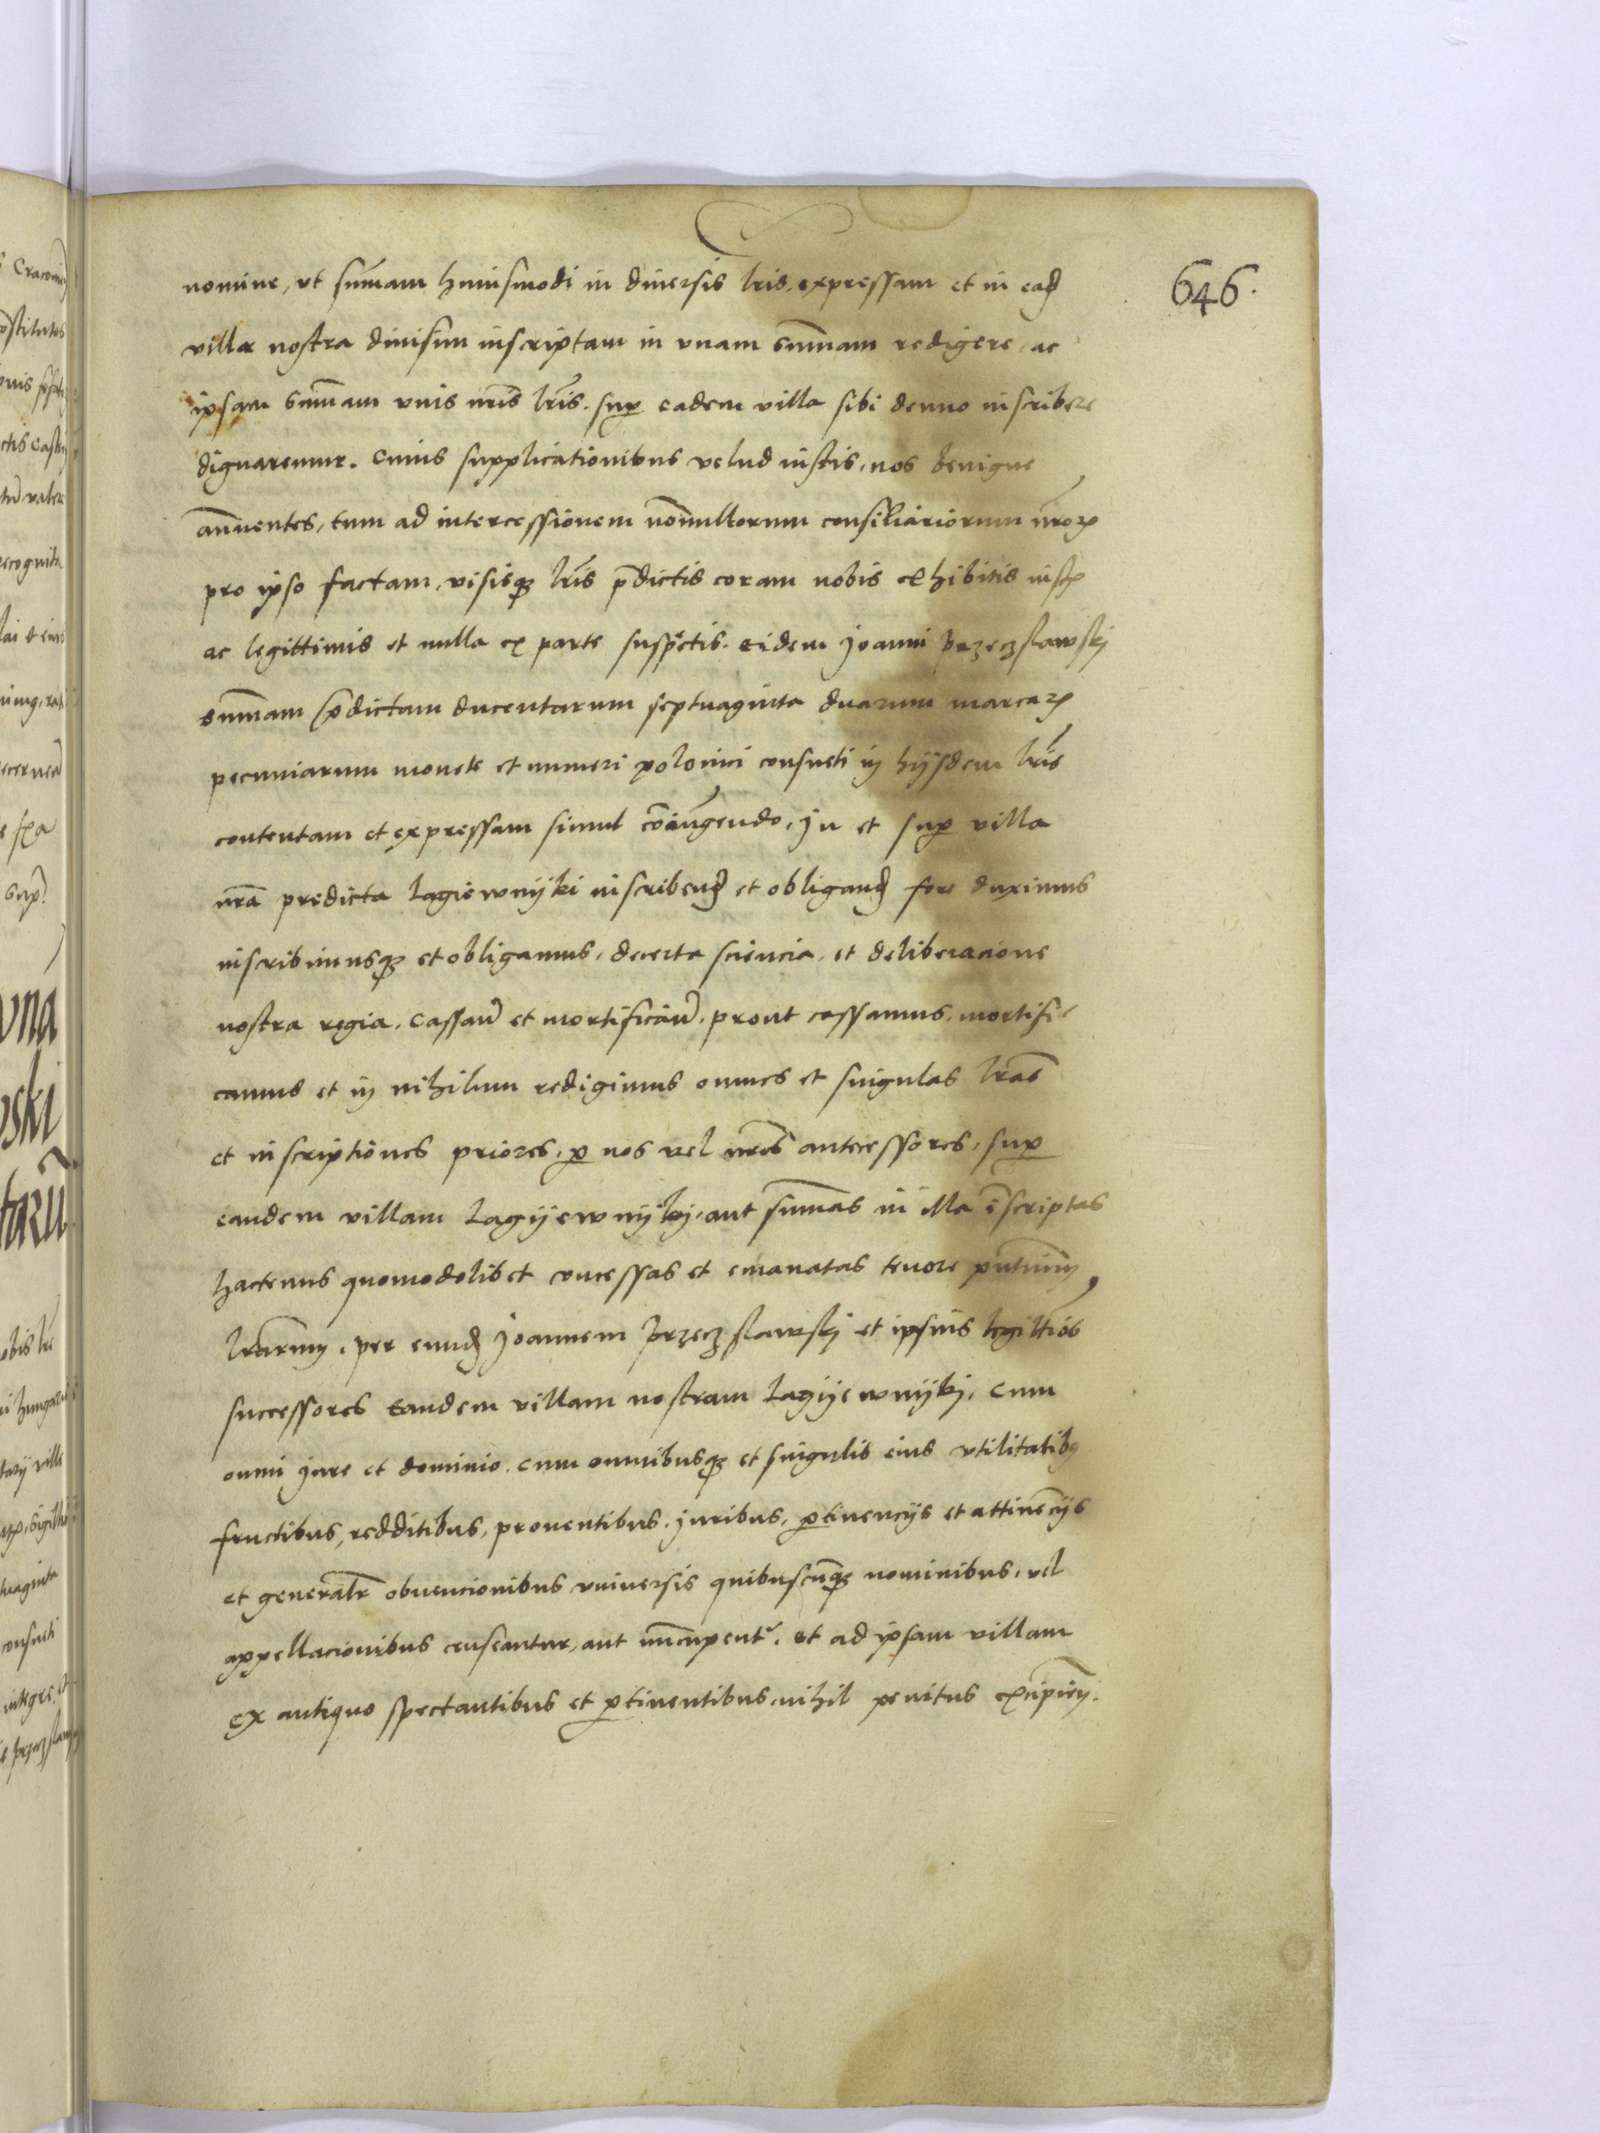 646.
nomine, vt sum̄am huiusmodi in diuersis lr̄is expressam et in ead
villa nostra diuisim inscriptam in vnam sum̄am redigere, ac
ipsam sum̄am vnis nr̄is lr̄is. sup eadem villa sibi denuo inscribere
dignaremur. Cuius supplicationibus velud iustis, nos benigne
an̄uentes, tum ad intercessionem non̄ullorum consiliariorum nr̄oꝝ
pro ipso factam, visisqꝫ lr̄is p̄dictis coram nobis exhibitis iustꝭ
ac legittimis et nulla ex parte suspectis. eidem Joanni Przeczslawskj
sum̄am p̄dictam ducentarum septuaginta duarum marcaꝝ
pecuniarum monete et numeri polonici consueti in hijsdem lr̄is
contentam et expressam simul cōiungendo, in et sup villa
nr̄a predicta Lagiewnijki inscribend et obligand fore duximus
inscribimusqꝫ et obligamus, de certa sciencia, et deliberacione
nostra regia. Cassan̄ et mortifican̄. prout cassamus, mortifi-
camus et in nihilum redigimus omnes et singulas lr̄as
et inscriptiones priores, ꝑ nos vel nr̄os antecessores, sup
eandem villam Lagijewnijkj, aut sum̄as in illa īscriptas
hactenus quomodolibet concessas et emanatas tenore pn̄tium
lr̄arum, per eund Joannem Przeczslawskj et ipsius legittīos
successores eandem villam nostram Lagijewnijkj, cum
omni jure et dominio. cum omnibusqꝫ et singulis eius vtilitatibꝰ
fructibus, redditibus, prouentibus, juribus, ꝑtinencijs et attinēcijs
et generalr̄ obuencionibus vniuersis quibuscūqꝫ nominibus, vel
appellacionibus censeantur, aut nūcupentʳ. et ad ipsam villam
ex antiquo spectantibus et ꝑtinentibus, nihil penitus excipien̄.